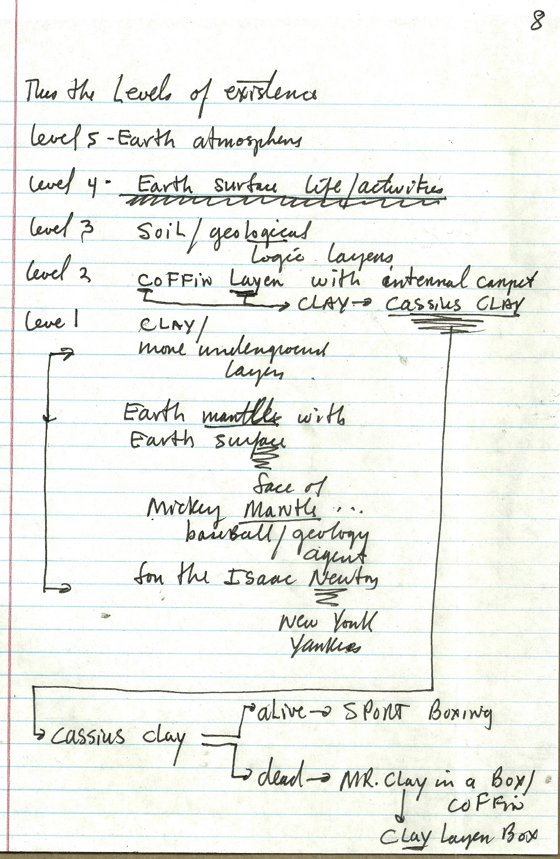 8
Thus the Levels of existence
Level 5 - Earth atmosphere
Level 4 - Earth surface life/activities
Level 3 Soil/geological
logic layers
Level 2 COFFin Layer with internal carpet
CLAY → CASSIUS CLAY
Level 1 CLAY/
more underground
layers
Earth mantle with
Earth surface
face of
Mickey Mantle ...
baseball/geology
agent
for the Isaac Newton
New York
Yankees
Cassius Clay
alive → SPORT Boxing
dead → MR. Clay in a Box/
COFFin
Clay Layer Box